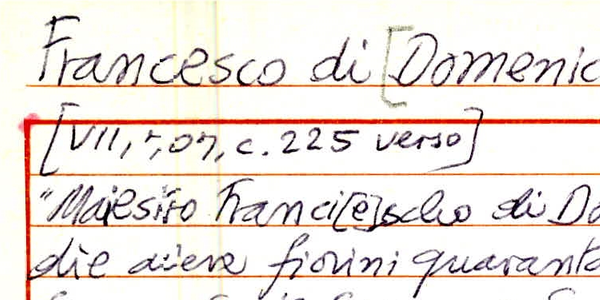 Francesco di [Domenic
[VII, 7, 07, c. 225 verso]
"Maiestro Franci[e]scho di Do
die avere fiorini quaranta